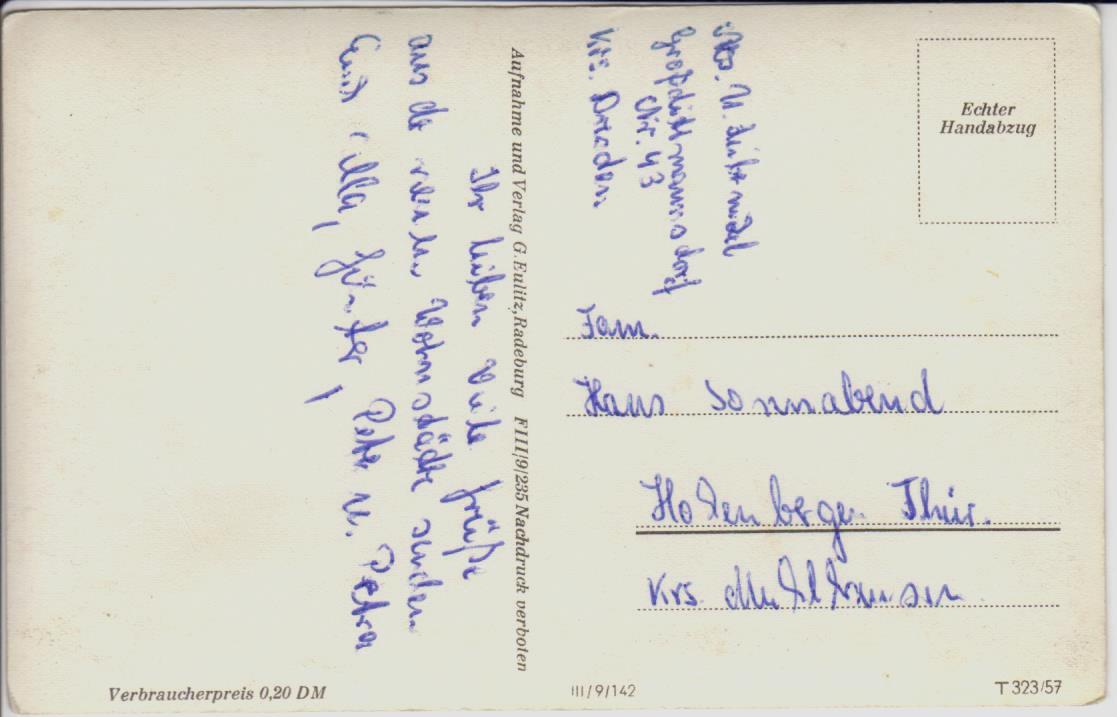 Ihr lieben Viele Grüße
aus de neuen Wohnstädte senden
Euch Ulla, Günter, Peter u. Petra
Aufnahme und Verlag G. Eulitz, Radeburg FIII/9/235 Nachdruck verboten
Abs. U.
Großdittmannsdorf
Nr. 43
Krs. Dresden
Echter
Handabzug
Fam.
Hans Sonnabend
Hohenbergen Thür.
Krs. Mühlhausen
Verbraucherpreis 0,20 DM
III/9/142
T 323/57